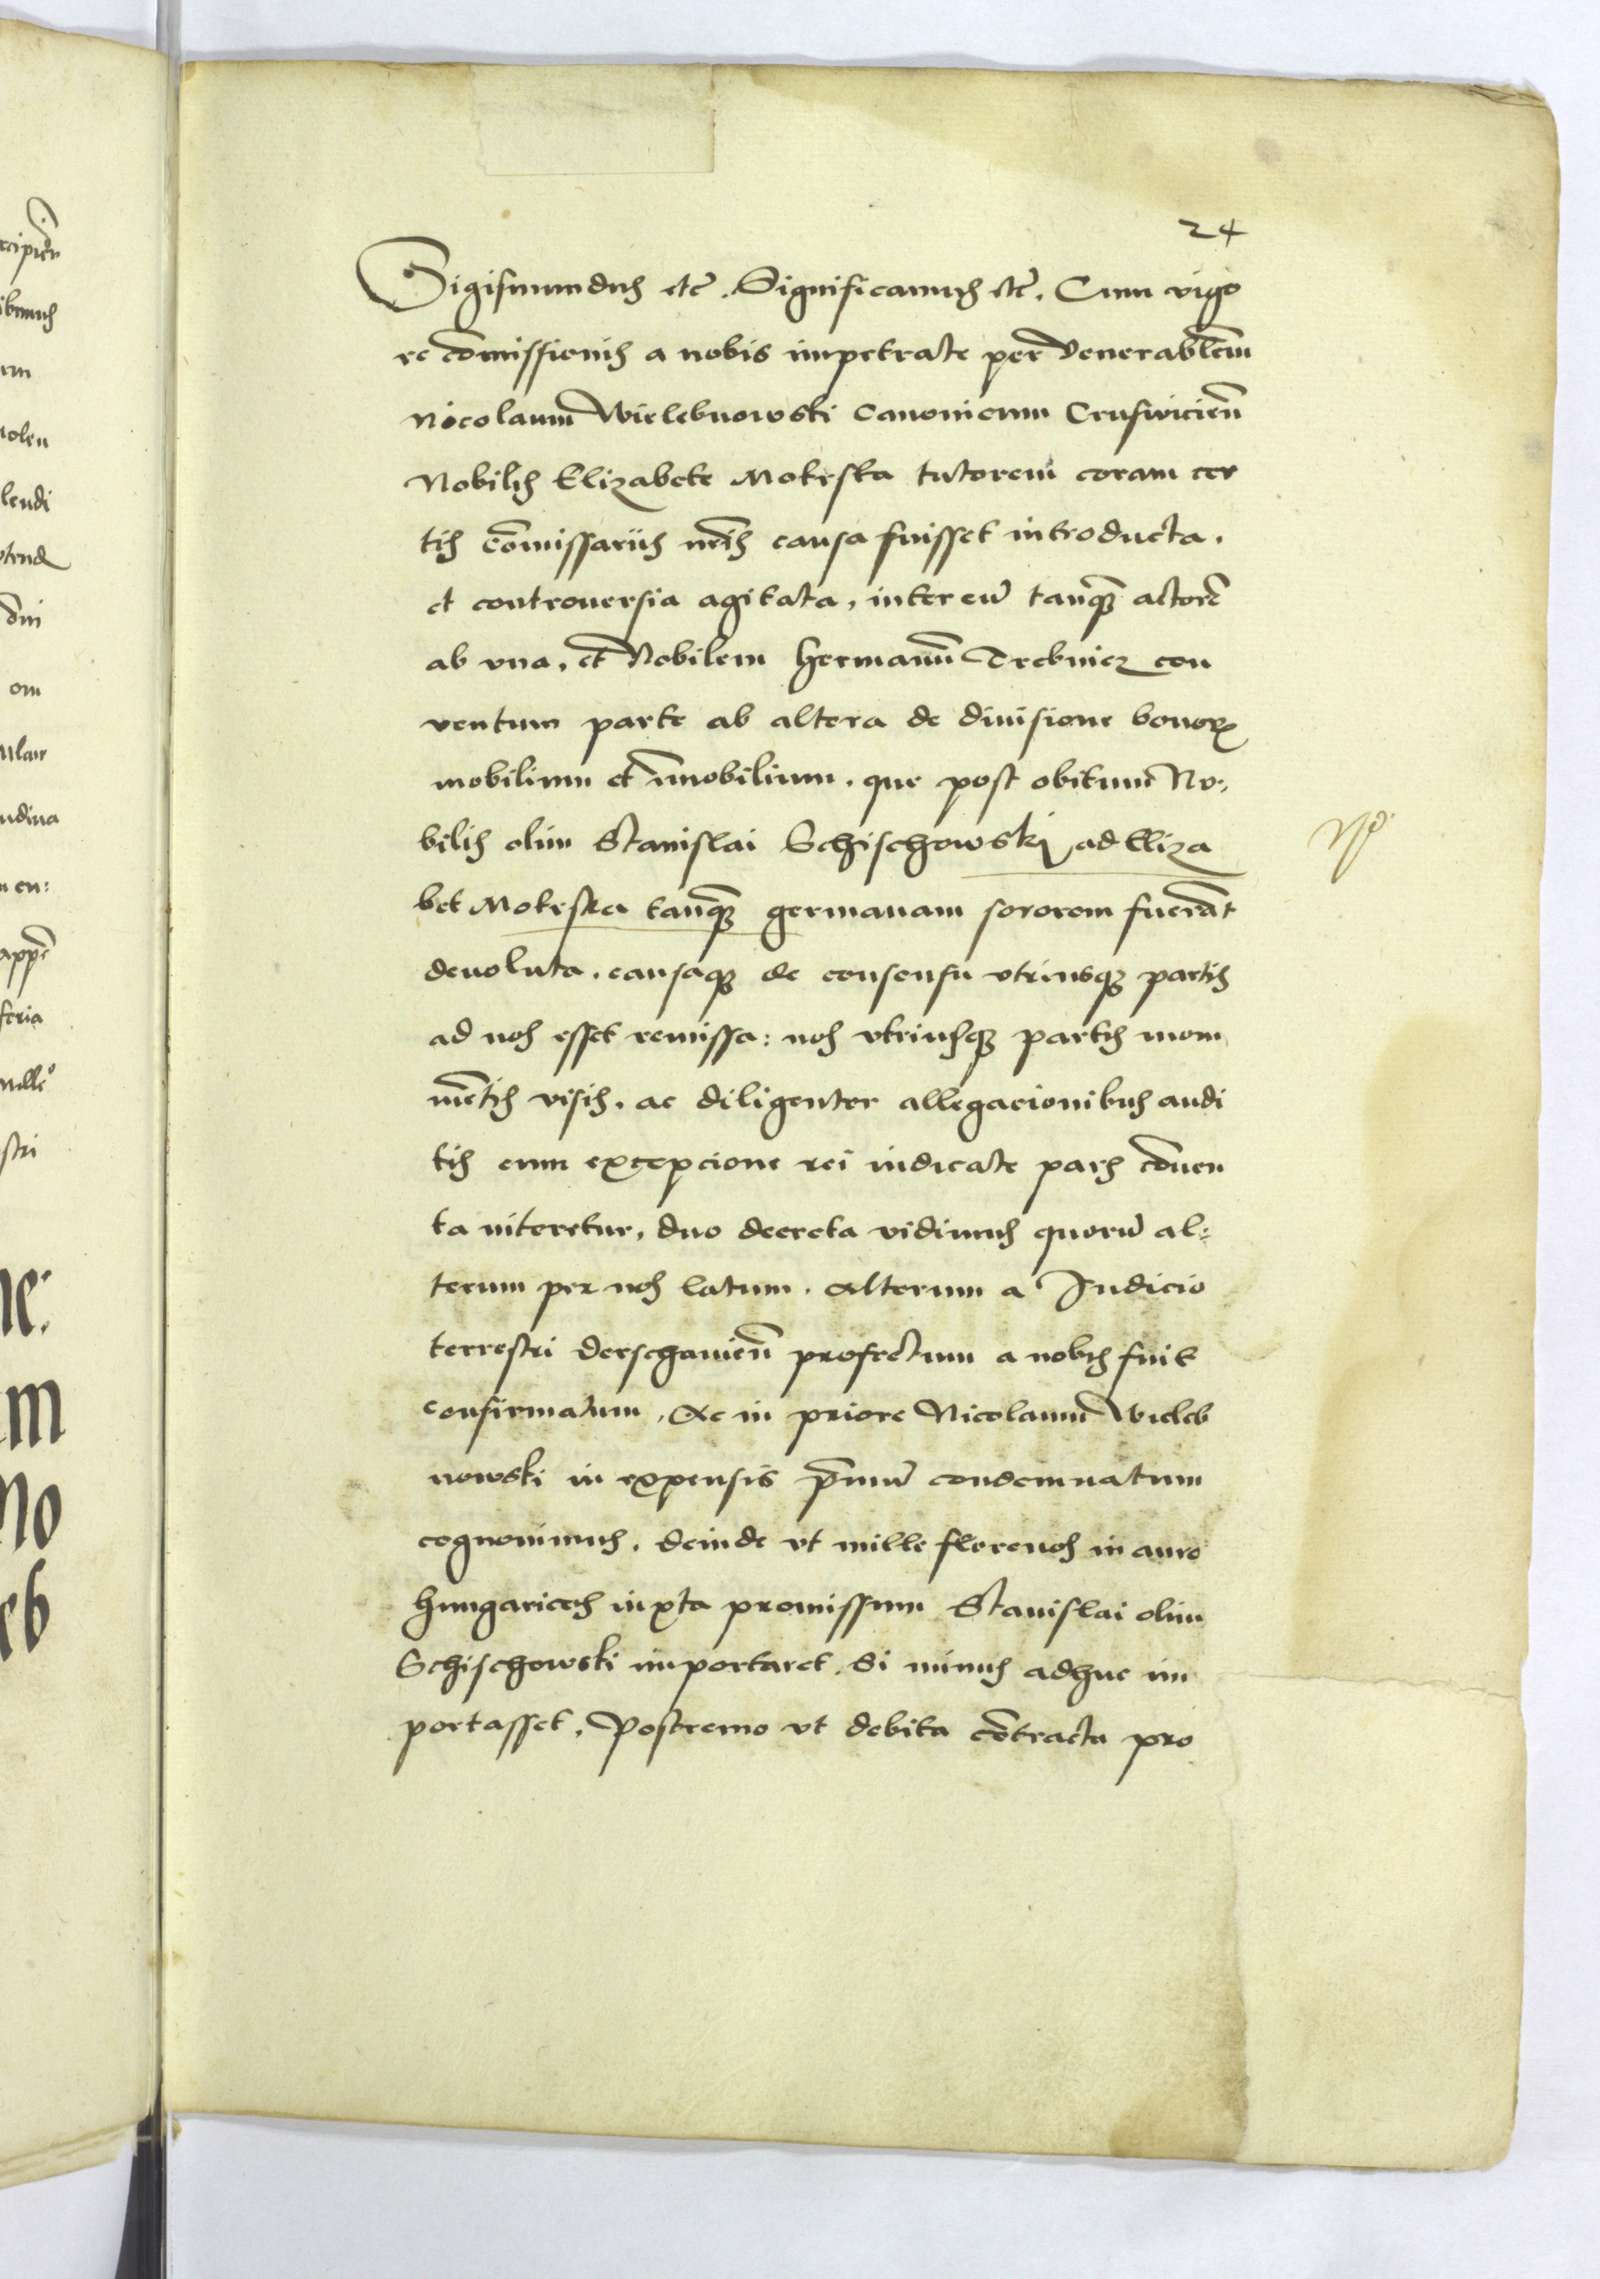 24
Sigismundus etc̃. Significamus etc̃. Cum vigo
re cõmissionis a nobis impetrate per Venerablẽm
Nicolaum Wielebnowski Canonicum Crusvicieñ
Nobilis Elizabete Mokrska tutorem coram cer
tis cõmissariis nrĩs causa fuisset introducta.
et controuersia agitata, inter eũ tanq̃ actorẽ
ab vna, et Nobilem Hermanũ Trebnicz con
ventum parte ab altera de diuisione bonorꝝ
mobilium et ĩmobilium. que post obitum No-
bilis olim Stanislai Schischowski ad Eliza
bet Mokrska tanq̃ germanam sororem fuerãt
deuoluta. causaqꝫ de consensu vtriusqꝫ partis
ad nos esset remissa: nos vtriusqꝫ partis moni
mẽtis visis. ac diligenter allegacionibus audi
tis cum excepcione rei iudicate pars cõuen
ta niteretur, duo decreta vidimus quorũ al-
terum per nos latum. alterum a Iudicio
terrestri Derschauieñ profectum a nobis fuit
confirmatum. Ac in priore Nicolaum Wieleb
nowski in expensis p̃mũ condemnatum
cognouimus. deinde vt mille florenos in auro
hungaricos iuxta promissum Stanislai olim
Schischowski importaret. Si minus adhuc im
portasset. Postremo vt debita cõtracta pro